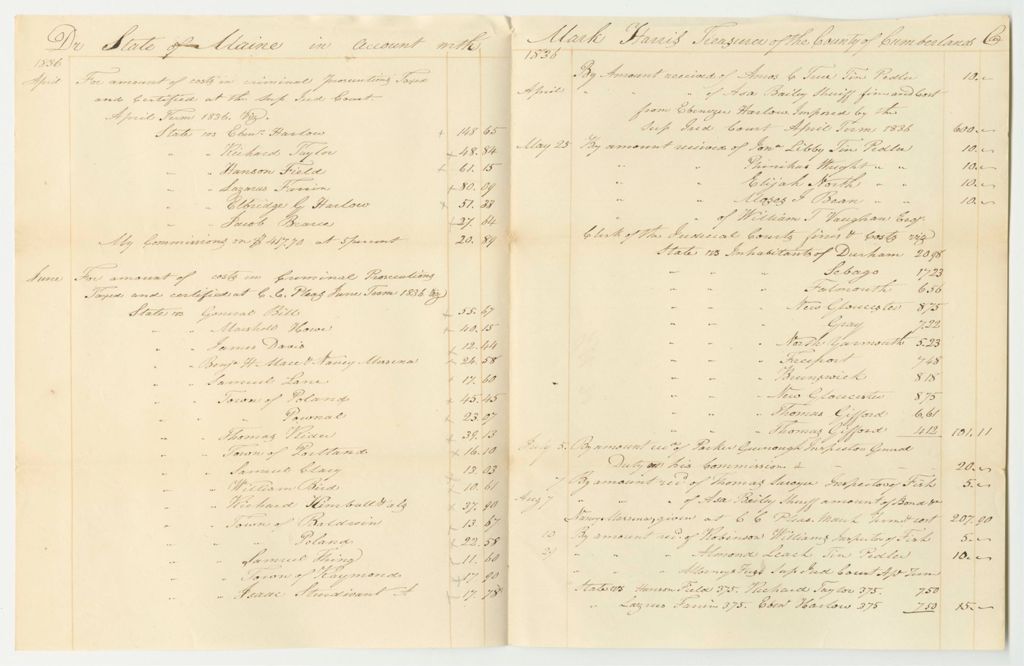 Dr State of Maine in account with
1836
April For amount of costs in criminal prosecutions Taxed
and Certified at the Sup Jud Court
April Term 1836. Viz.
State vs Ebenr Harlow 148.65
" " Richard Taylor 48.84
" " Hanson Field 61.15
" " Lazarus 80.09
" " Elbridge G Harlow 51.33
" " Jacob 27.64
My Commissions on $ 417.70 at 5 percent 20.89
June For amount of costs in Criminal Prosecutions
Taxed and certified at C.C. Pleas June Term 1836 Viz
State vs General Bill 55.67
" " Marshall Howe 40.15
" " James David 12.44
" " Benj H Mace & Nancy 24.58
" " Samuel Lane 17.60
" " Town of Poland 45.45
" " " Pownal 23.97
" " Thomas 39.13
" " Town of Portland 16.10
" " Samuel Clary 13.03
" " William Bird 10.61
" " Richard Kimball & als 37.90
" " Town of Baldwin 13.67
" " " Poland 22.58
" " Samuel Thing 11.60
" " Town of Raymond 17.90
" " Isaac Sturdivant 17.78
Mark Harris Treasurer of the County of Cumberland Cr
1836
By Amount received of Amos C True Tin Pedler 10.
April " " " of Asa Bailey Sheriff fine and Cost
from Ebenezer Harlow Imposed by the
Sup Jud Court April Term 1836 600.
May 25 By amount received of Jona Libby Tin Pedler 10.
" " Phinihas Wright " " 10.
" " Elijah North " " 10.
" " Moses J Bean " " 10.
" " of William T Vaughan Esqr
Clerk of the Judicial Courts fines & Costs viz
State vs Inhabitants of Durham 20.98
" " " Sebago 17.23
" " " Falmouth 6.56
" " " New Gloucester 8.75
" " " Gray 7.22
" " " North Yarmouth 5.23
" " " Freeport 7.48
" " " Brunswick 8.18
" " " New Gloucester 8.75
" " " Thomas Gifford 6.61
" " " Thomas Gifford 4.12 101.11
July 5 By amount recd of Parker Inspector General
Duty on his Commission 20.
7 By amount recd of Thomas Inspector of Fish 5.
Aug 7 " " " of Asa Baily Sheriff amount of Bond &
Nancy given at C C Pleas March Term & cost 207.90
10 By amount recd. of Robinson Williams Inspector of Fish 5.
21 " " " Almond Leach Tin Pedler 10.
" " " Attorneys Fees Sup Jud Court Apl Term
State vs Hanson Field 3.75. Richard Taylor 3.75. 7.50
" Lazrus 3.75. Ebenr Harlow 3.75 7.50 15.